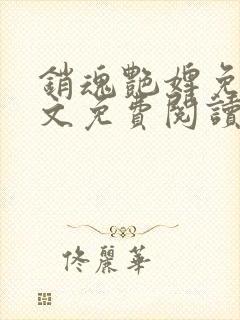 銷魂艷婢免
文免費閱讀
佟麗華